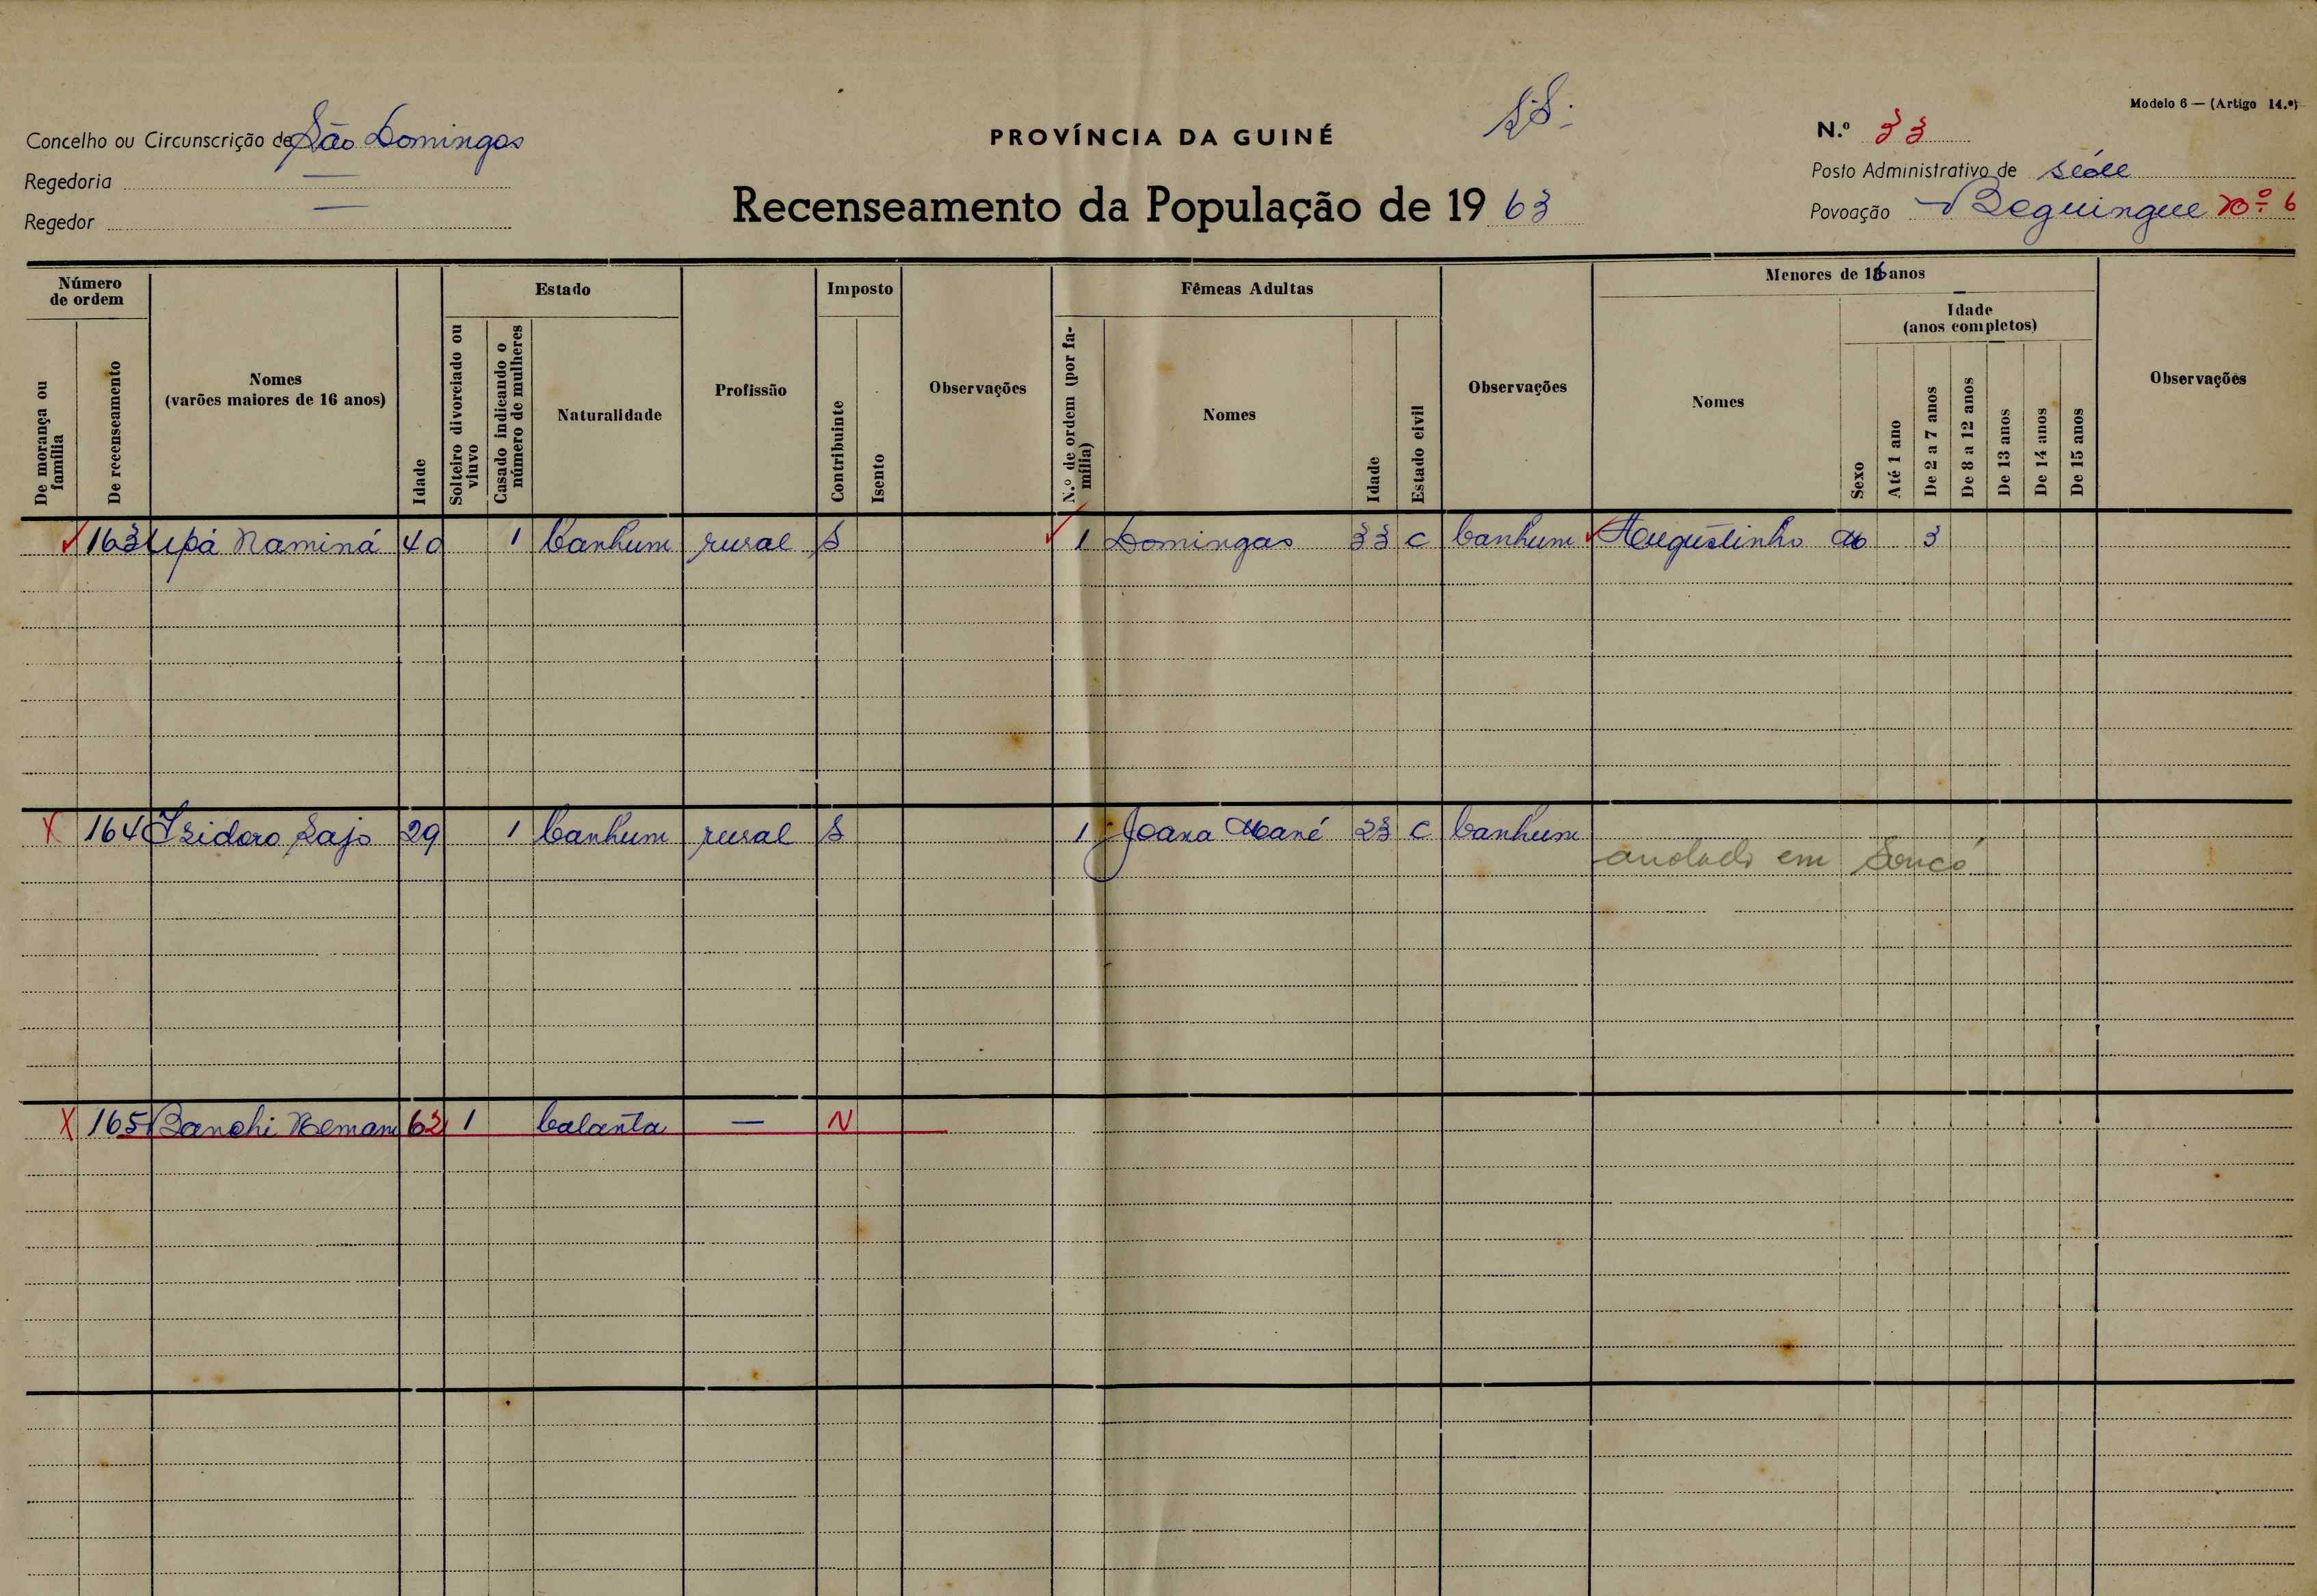 Modelo 6 — (Artigo 14.º)
Concelho ou Circunscrição de São Domingos
PROVÍNCIA DA GUINÉ
N.º 33
Regedoria —
Posto Administrativo de Séde
Regedor —
Recenseamento da População de 1963
Povoação Beguingue Nº 6
Número de ordem
De morança ou família
De recenseamento
Nomes
(varões maiores de 16 anos)
Idade
Estado
Solteiro divorciado ou viuvo
Casado indicando o número de mulheres
Naturalidade
Profissão
Imposto
Contribuinte
Isento
Observações
Fêmeas Adultas
N.º de ordem (por família)
Nomes
Idade
Estado civil
Observações
Menores de 16 anos
Nomes
Sexo
Idade
(anos completos)
Até 1 ano
De 2 a 7 anos
De 8 a 12 anos
De 13 anos
De 14 anos
De 15 anos
Observações
163 Upá Naminá 40 1 banhum rural S 1 Domingas 33 c banhum Augustinho M 3
164 Izidoro Sajo 29 1 banhum rural S 1 Joana Mané 23 c banhum
em
165 62 1 balanta — N